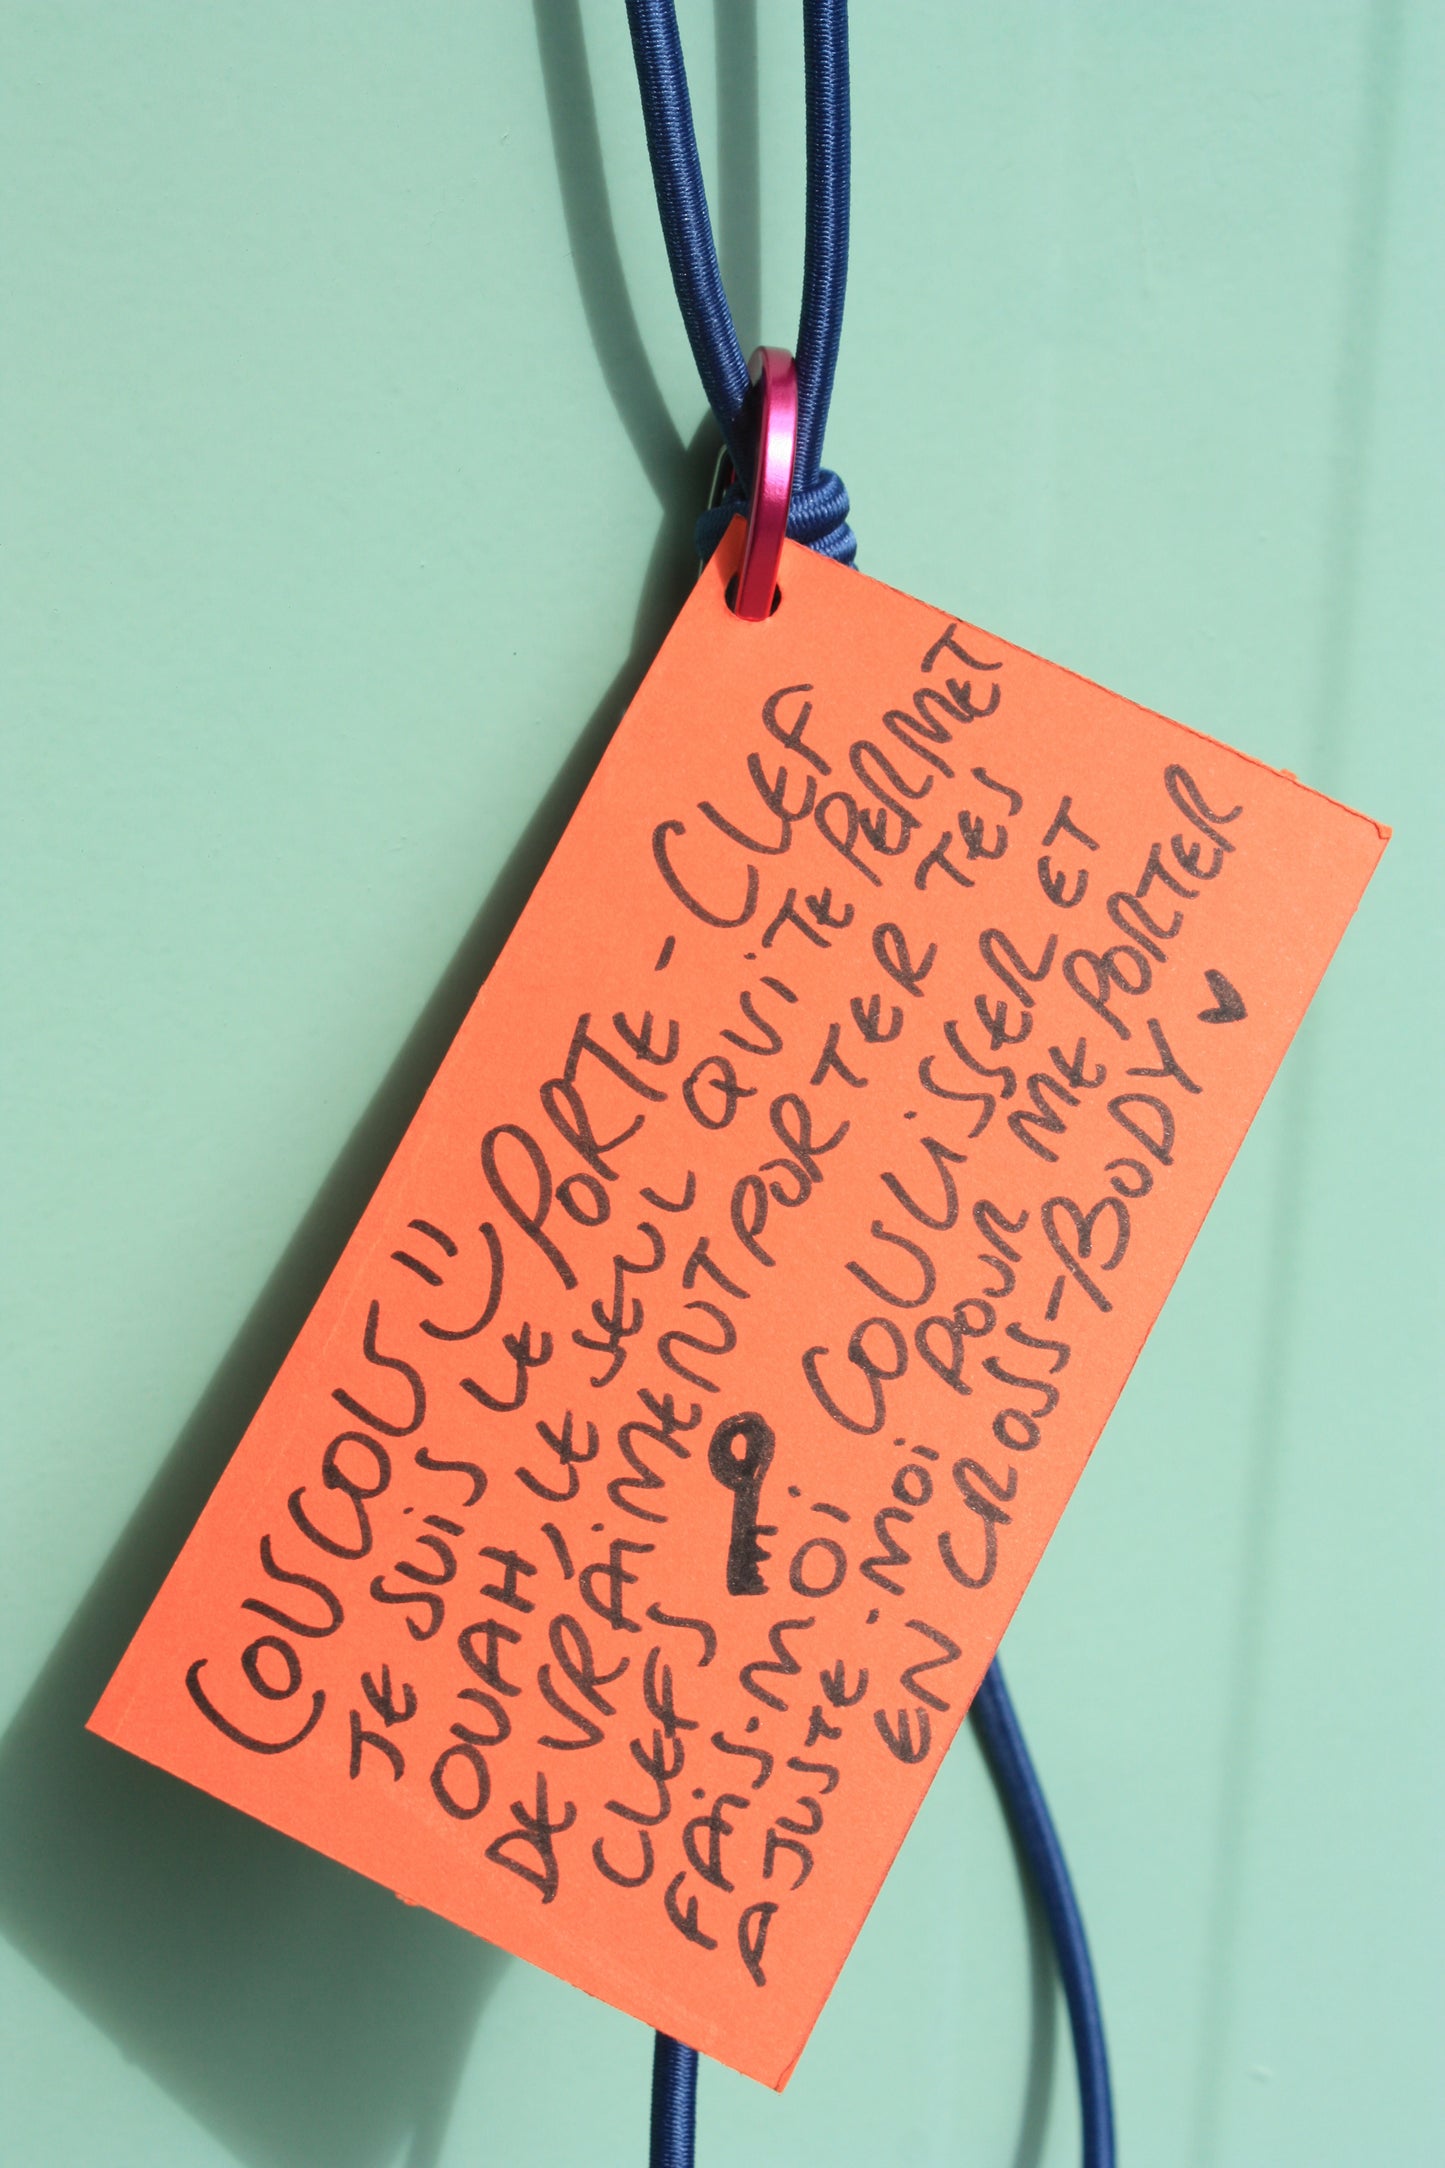 COUCOU
JE SUIS LE PORTE-CLEF
OUAH, LE SEUL QUI TE PERMET
DE VRAIMENT PORTER TES
CLEFS
FAIS-MOI COULISSER ET
AJUSTE-MOI POUR ME PORTER
EN CROSS-BODY